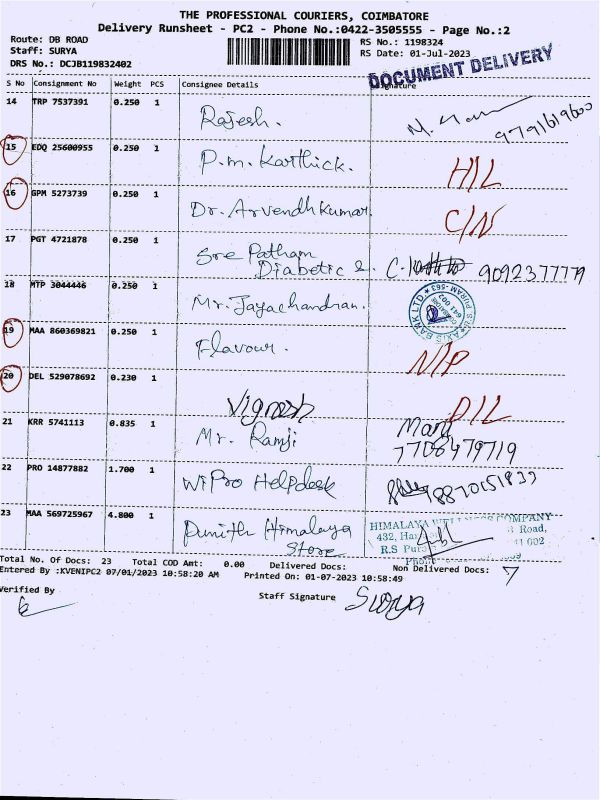 THE PROFESSIONAL COURIERS, COIMBATORE
Delivery Runsheet - PC2 - Phone No.:0422-3505555 - Page No.:2
Route: DB ROAD
Staff: SURYA
DRS No.: DCJB119832402
RS No.: 1198324
RS Date: 01-Jul-2023
DOCUMENT DELIVERY
S No Consignment No Weight PCS Consignee Details Signature
14 TRP 7537391 0.250 1 Rajesh. 9791619600
15 EDQ 25600955 0.250 1 P.m. Karthick. H/L
16 GPM 5273739 0.250 1 Dr. Arvendhkumar. C/N
17 PGT 4721878 0.250 1 Sree Patham
Diabetic &. 9092377779
18 MTP 3044446 0.250 1 Mr. Jayachandran.
AXIS BANK LTD
19 MAA 860369821 0.250 1 Flavour. N/P
20 DEL 529078692 0.230 1 Vignesh D/L
21 KRR 5741113 0.835 1 Mr. Ramji
7708479719
22 PRO 14877882 1.700 1 WiPro Helpdesk
23 MAA 569725967 4.800 1 Punith Himalaya
Store
HIMALAYA WELLNESS COMPANY
432, Road,
R.S Pura
Total No. Of Docs: 23 Total COD Amt: 0.00 Delivered Docs: Non Delivered Docs: 7
Entered By :KVENIPC2 07/01/2023 10:58:20 AM Printed On: 01-07-2023 10:58:49
Verified By
Staff Signature Surya